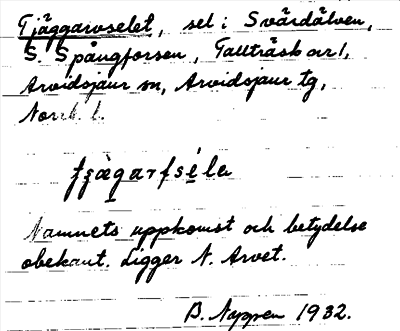 Tjäggarvselet, sel i Svärdälven,
S. Spångforsen, Tallträsk avr 1,
Arvidsjaur sn, Arvidsjaur tg,
Norrb. l.
Namnets uppkomst och betydelse
obekant. Ligger N. Arvet.
B. Nappen 1932.